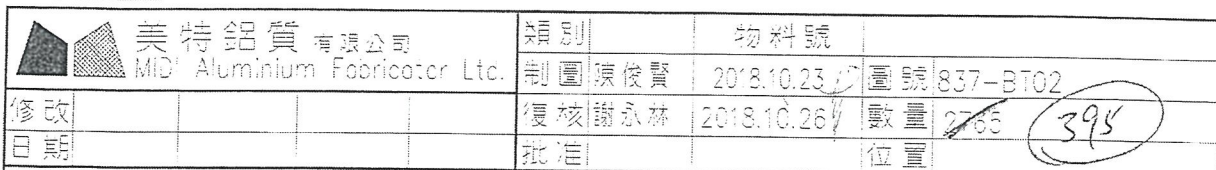 美特鋁質有限公司
MIDI Aluminium Fabricator Ltc.
類別 物料號
制圖 陳俊賢 2018.10.23 圖號 837-BT02
修改 復核 謝永林 2018.10.26 數量 2765 395
日期 批准 位置